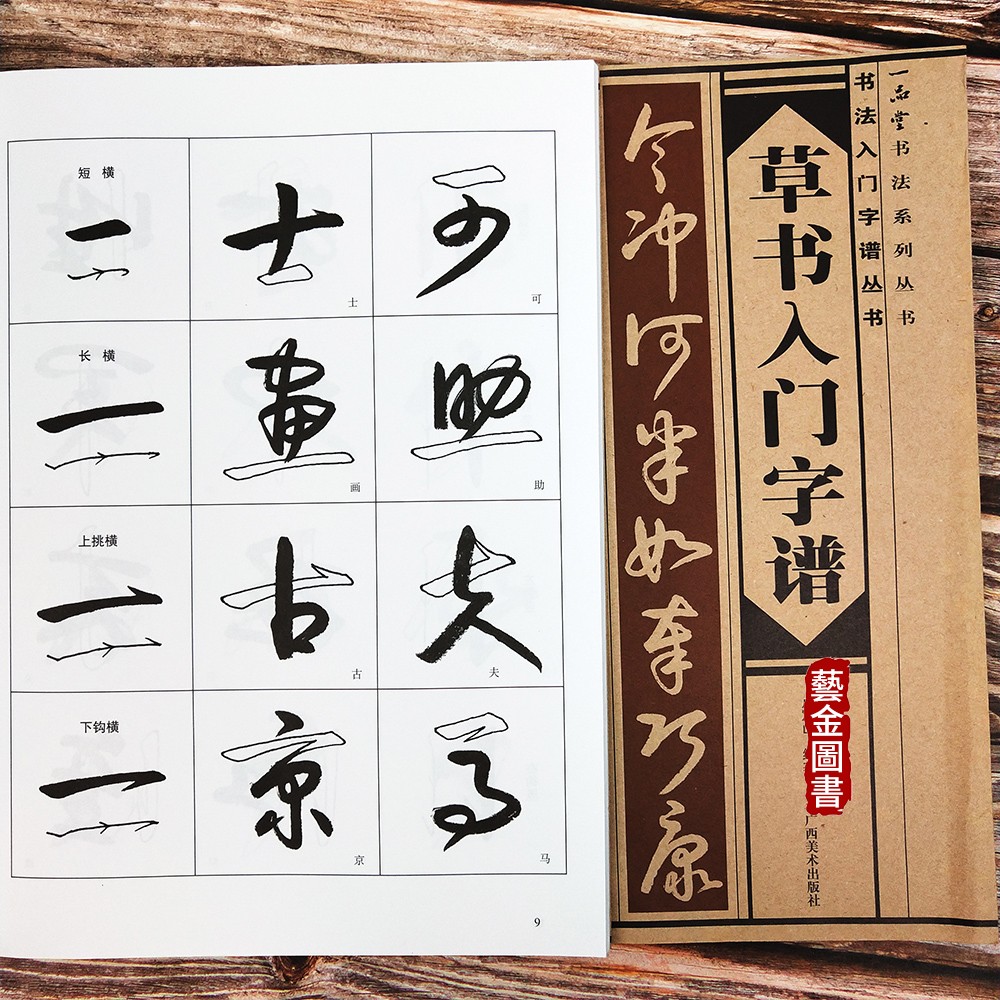 短 横
士 可
士 可
长 横
画 助
画 助
上挑横
古 夫
古 夫
下钩横
京 马
京 马
9
一品堂书法系列丛书
书法入门字谱丛书
草书入门字谱
藝金圖書
广西美术出版社